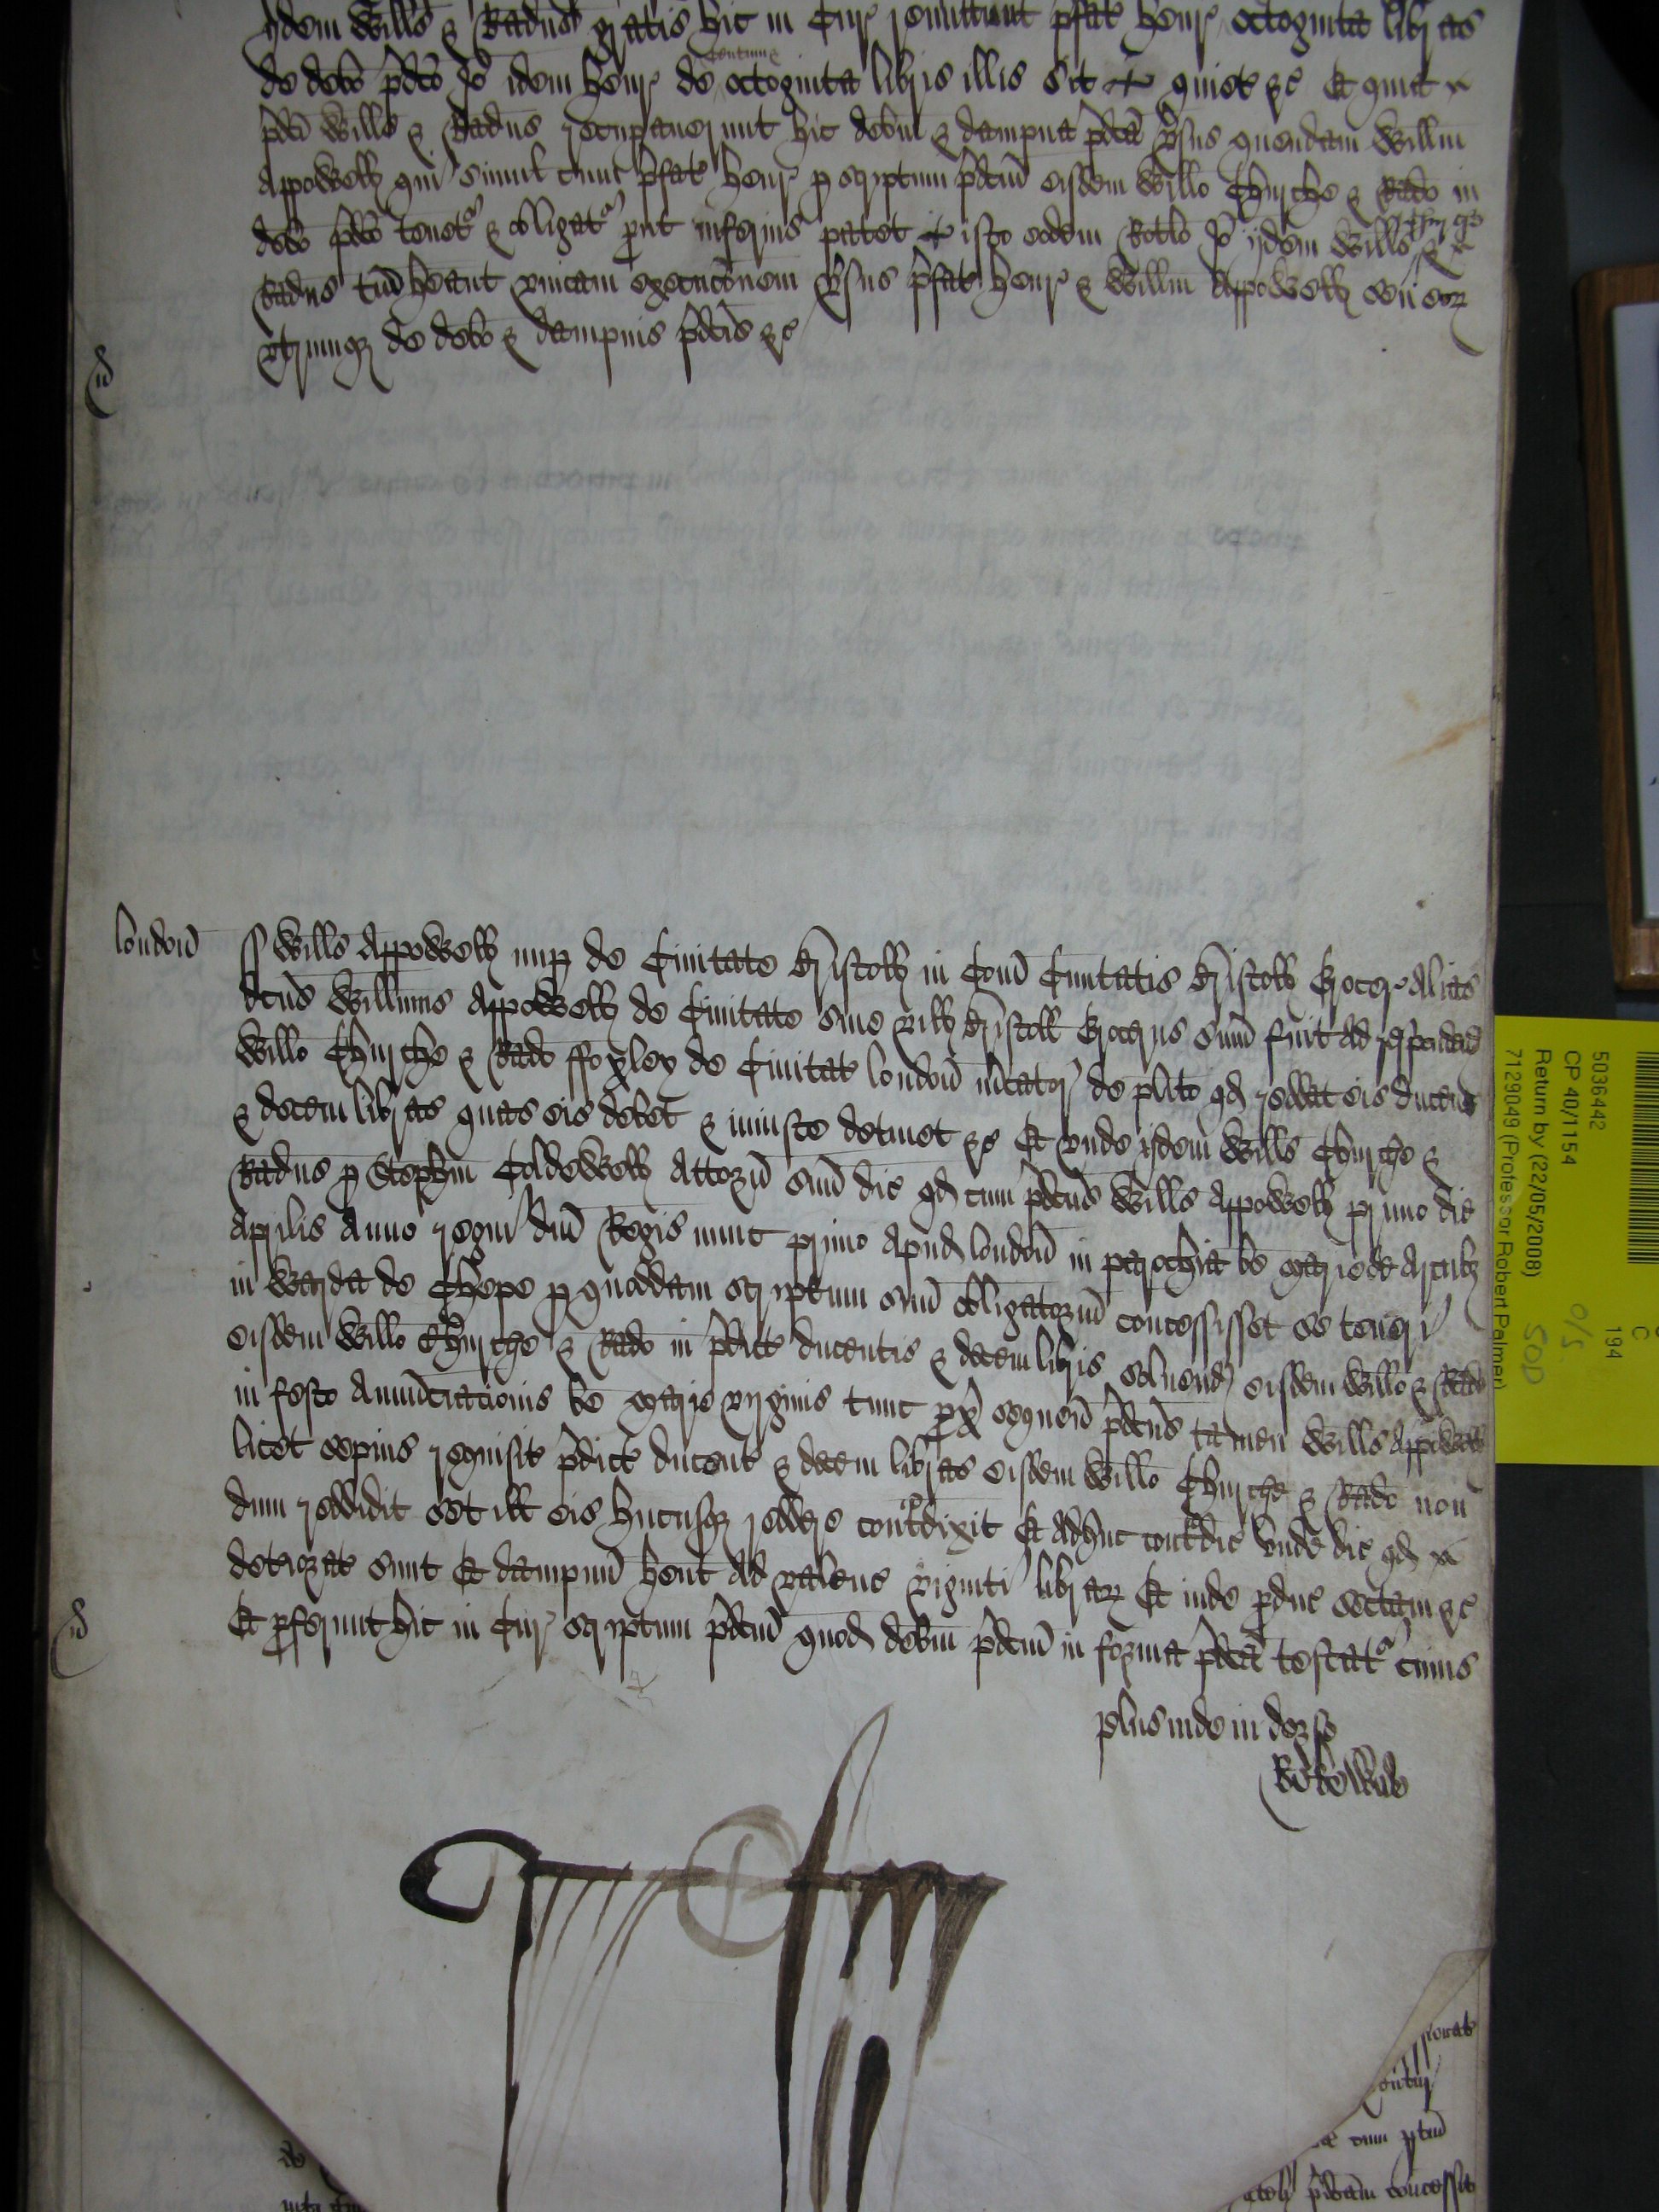 ijdem Wills & Radus gratis hic in Cur remittunt pfat Henr octoginta libras
de debo pdco Io idem Henr de octoginta libris illis sit quiet &c Et quia
pdci Wills & Radus recupaverunt hic debm & dampna pdca vsus quendam Willm
Appowell qui simul cum pfat Henr p scriptum pdcm eisdem Willo Churche & Rado in
debo pdco tenet & obligat put inferius patet isto eodem Rotlo Io ijdem Wills Churche &
Radus tm heant unicam execuconem vsus pfat Henr & Willm Appowell seu eor
utrumq de debo & dampnis pdcis &c
London
ss Wills Appowell nup de Civitate Bristoll in Com Civitatis Bristoll Grocer alias
dcus Willimus Appowell de Civitate sive vill Bristoll Grocerus sum fuit ad respondend
Willo Churche & Rado ffoxley de Civitat London mcator de plito qd reddat eis ducent
& decem libras quas eis debet & iniuste detinet &c Et unde ijdem Wills Churche &
Radus p Stephm Caldewell attorn suu dic qd cum pdcus Wills Appowell primo die
Aprilis Anno regni dni Regis nunc primo apud London in parochia be Marie de Arcub
in Warda de Chepe p quoddam scriptum suu obligatoriu concessisset se teneri
eisdem Willo Churche & Rado in pdict ducentis & decem libris solvend eisdem Willo & Rado
in festo Annunciacionis be Marie virginis tunc px sequen pdcus tamen Wills Appowell
licet sepius requisit pdict ducent & decem libras eisdem Willo Churche & Rado non
dum reddidit set ill eis hucusq redde contradixit Et adhuc contradic unde dic qd
deteriorat sunt Et dampnu hent ad valenc viginti librar Et inde pduc sectam &c
Et pferunt hic in Cur scriptum pdcm quod debm pdcm in forma pdca testat cuius
plus inde in dorso
5036442
CP 40/1154
Return by (22/05/2008)
7129049 (Professor Robert Palmer)
194
O/S
500